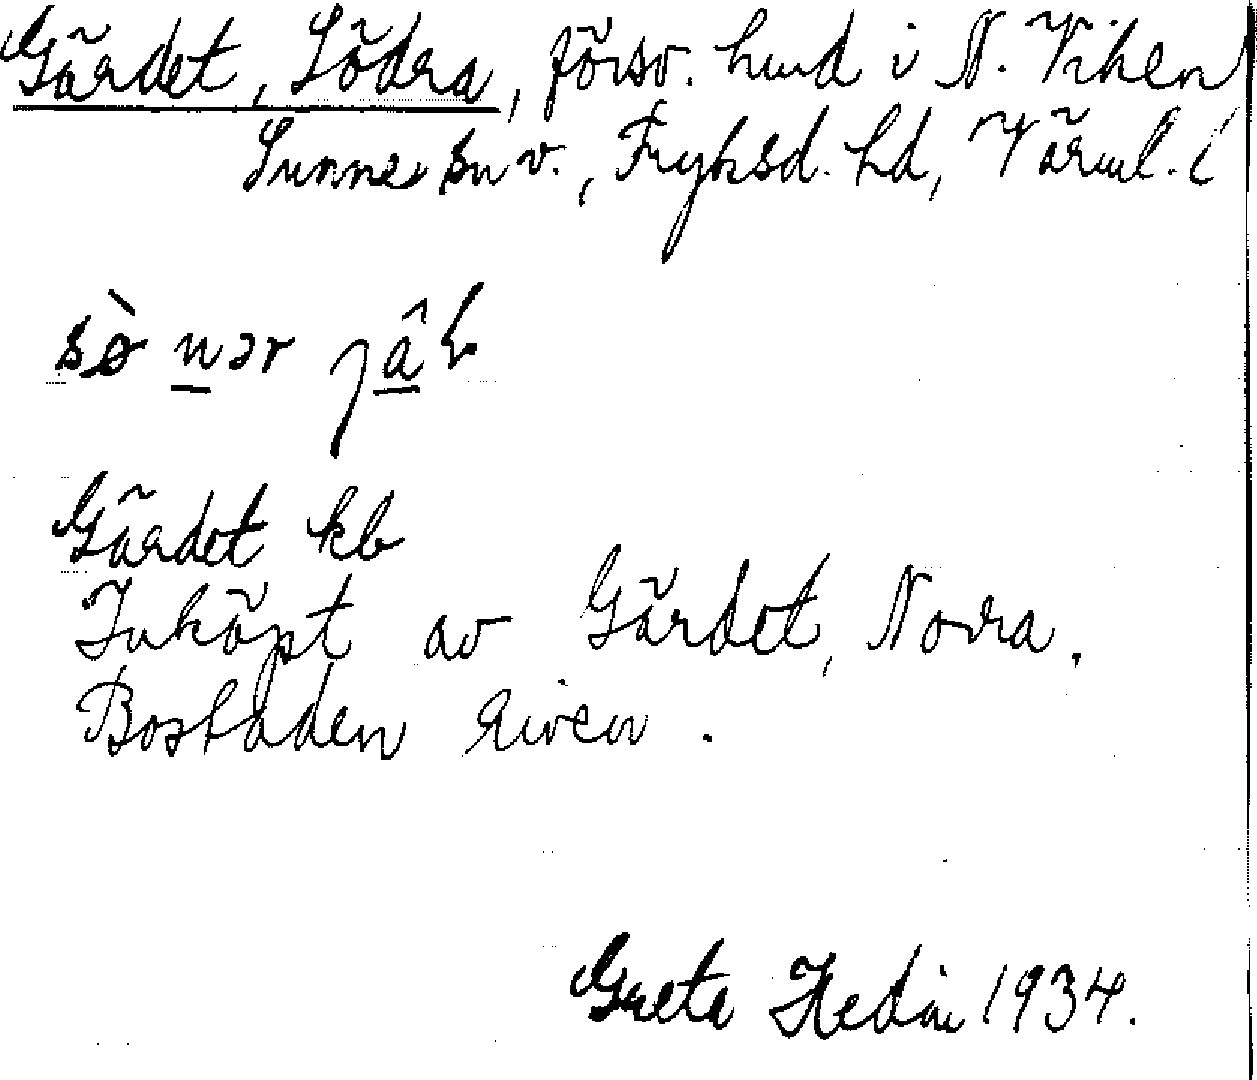 Gärdet, Södra, försv. hmd i N. Viken
Sunne sn v., Fryksd. hd, Värml. l
sø̀ nər jâɽ
Gärdet kb
Inköpt av Gärdet, Norra.
Bostaden riven.
Greta Hedin 1934.